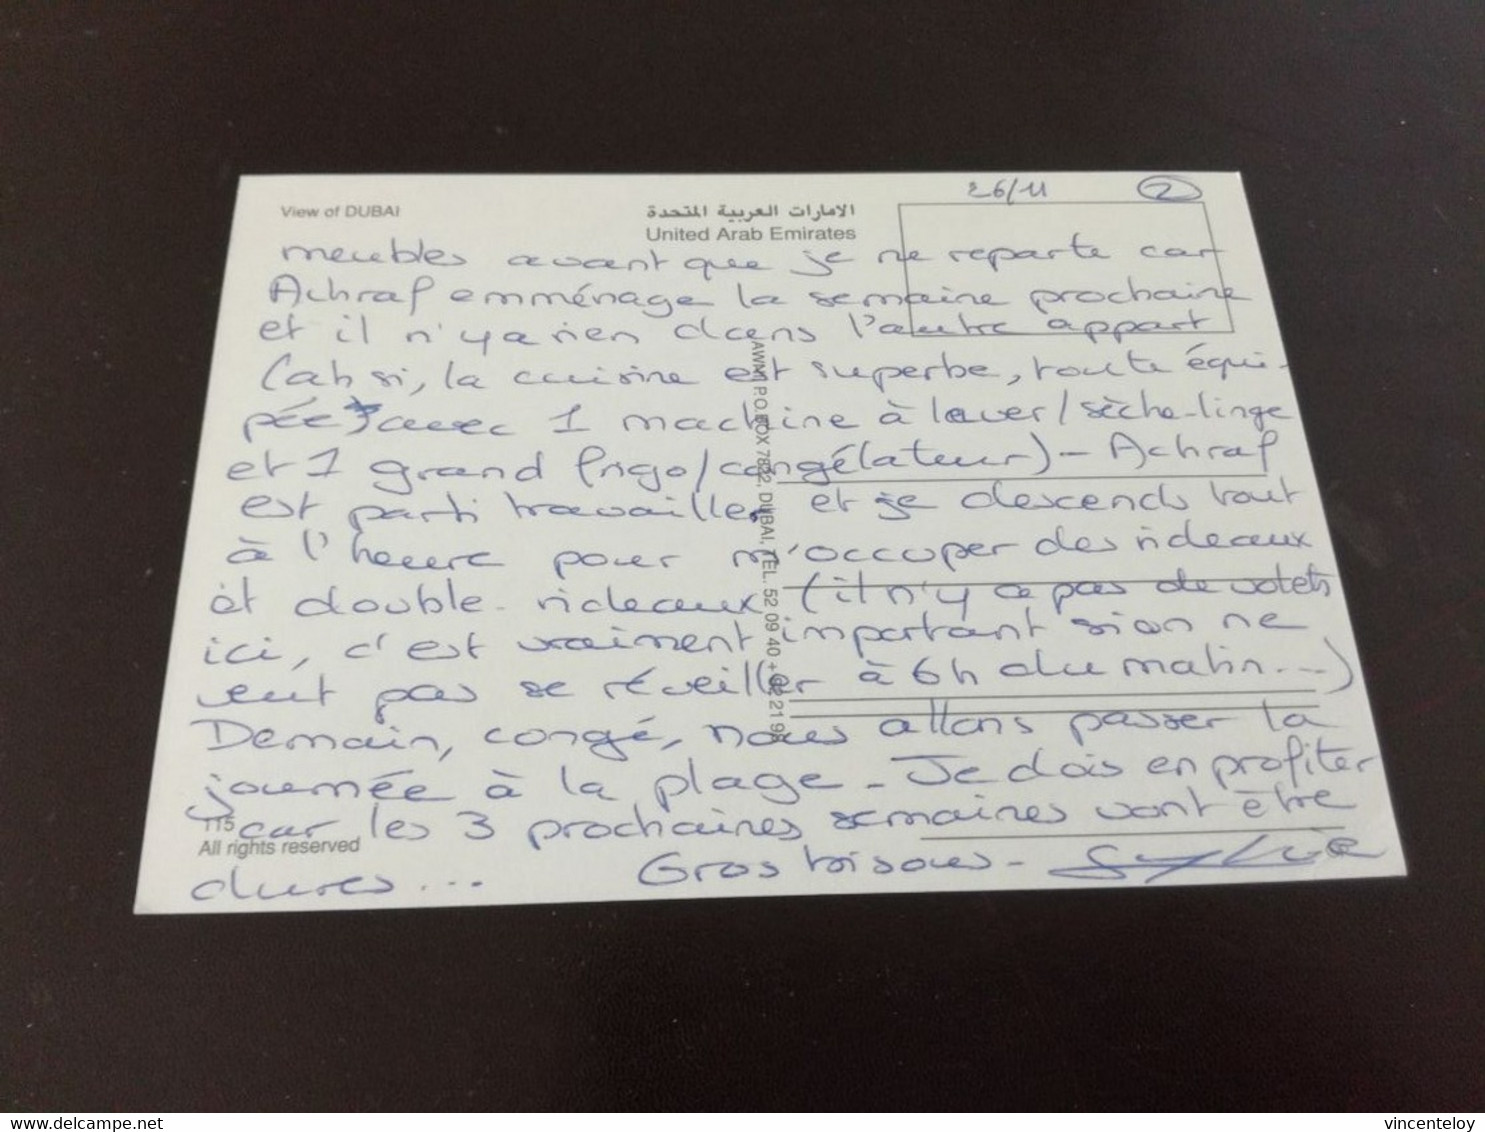 26/11 2
View of DUBAI
الامارات العربية المتحدة
United Arab Emirates
meubles avant que je ne reparte car
Achraf emménage la semaine prochaine
et il n'y a rien dans l'autre appart
(ah si, la cuisine est superbe, toute équi-
pée avec 1 machine à laver/sèche-linge
et 1 grand frigo/congélateur) - Achraf
est parti travailler et je descends tout
à l'heure pour m'occuper des rideaux
et double-rideaux (il n'y a pas de volets
ici, c'est vraiment important si on ne
veut pas se réveiller à 6h du matin...)
Demain, congé, nous allons passer la
journée à la plage - Je dois en profiter
car les 3 prochaines semaines vont être
dures... Gros bisous - Sylvie
AWNI P.O.BOX 7822, DUBAI, TEL. 52 09 40 +
115
All rights reserved
delcampe.net
vincenteloy